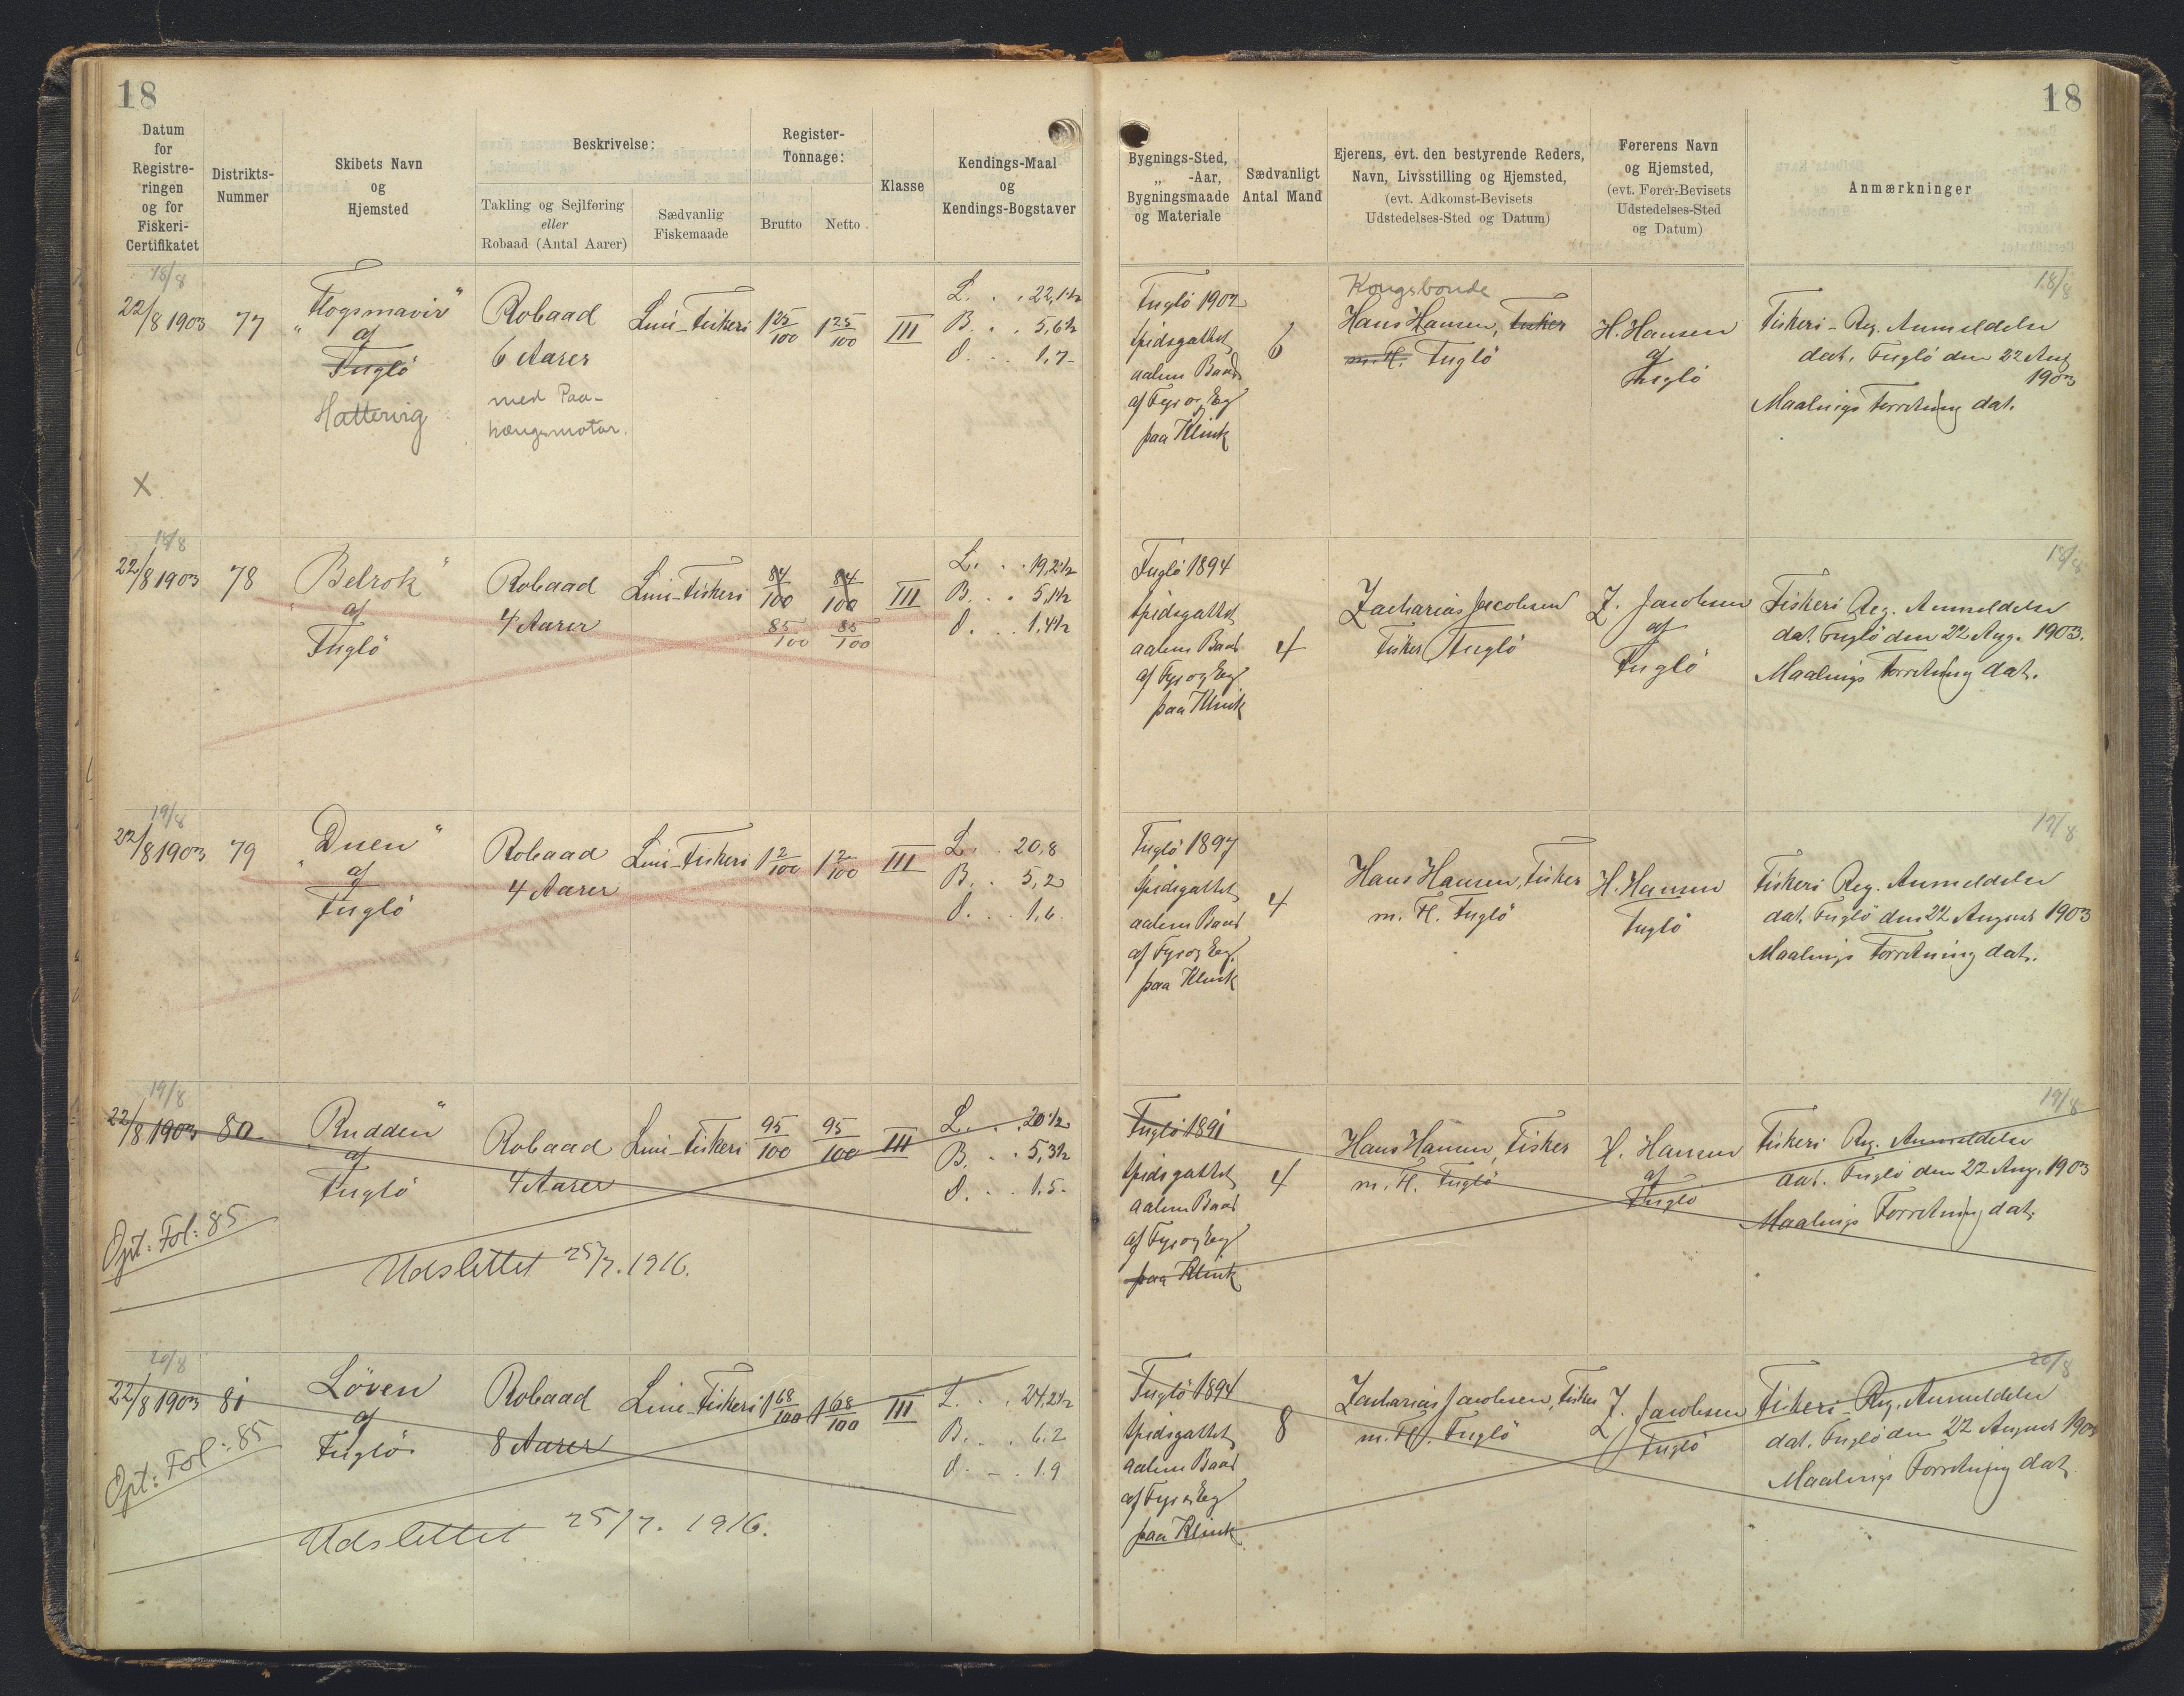 18
18
Datum for Registreringen og for Fiskeri-Certifikatet
Distrikts-Nummer
Skibets Navn og Hjemsted
Beskrivelse:
Takling og Sejlføring eller Robaad (Antal Aarer)
Sædvanlig Fiskemaade
Register-Tonnage:
Brutto
Netto
Klasse
Kendings-Maal og Kendings-Bogstaver
Bygnings-Sted, „ -Aar, Bygningsmaade og Materiale
Sædvanligt Antal Mand
Ejerens, evt. den bestyrende Reders, Navn, Livsstilling og Hjemsted, (evt. Adkomst-Bevisets Udstedelses-Sted og Datum)
Førerens Navn og Hjemsted, (evt. Fører-Bevisets Udstedelses-Sted og Datum)
Anmærkninger
18/8
22/8 1903 77 „Flogsmavir“ Robaad Line-Fiskeri 1 25/100 1 25/100 III L. . . 22,1½
af
Fuglö
Hattervig
6 Aarer
med Paa-
hængsmotor.
B. . . 5,6½
D. . . 1,7-
X
Fuglö 1902
spidsgattet
aaben Baad
af Fyr og Eg
paa Klink
6
Kongsbonde
Hans Hansen, Fisker
m. H. Fuglö
H. Hansen
af
Fuglö
18/8
Fiskeri-Reg. Anmeldelse
dat. Fuglö den 22 Aug
1903
Maalings Forretning dat.
18/8
22/8 1903 78 „Belrok“ Robaad Line-Fiskeri 84/100 84/100 III L. . . 19,2½
af
Fuglö
4 Aarer
85/100 85/100
B. . . 5,1½
D. . . 1,4½
Fuglö 1894
spidsgattet
aaben Baad
af Fyr og Eg
paa Klink
4
Zacharias Jacobsen
Fisker Fuglö
Z. Jacobsen
af
Fuglö
18/8
Fiskeri Reg. Anmeldelse
dat. Fuglö den 22 Aug. 1903.
Maalings Forretning dat.
19/8
22/8 1903 79 „Duen“ Robaad Line-Fiskeri 1 2/100 1 2/100 III L. . 20,8
af
Fuglö
4 Aarer
B. . 5,2
D. . . 1,6.
Fuglö 1897
spidsgattet
aaben Baad
af Fyr og Eg.
paa Klink
4
Hans Hansen, Fisker
m. H. Fuglö
H. Hansen
Fuglö
19/8
Fiskeri Reg. Anmeldelse
dat. Fuglö den 22 August 1903
Maalings Forretning dat.
19/8
22/8 1903 80 „Rudden“ Robaad Line-Fiskeri 95/100 95/100 III L. . . 20½
af
Fuglö
4 Aarer
B. . . 5,3½
D. . . 1,5-
Opt: Fol: 85
Udslettet 25/7. 1916.
Fuglö 1891
spidsgattet
aaben Baad
af Fyr og Eg
paa Klink
4
Hans Hansen, Fisker
m. H. Fuglö
H. Hansen
af
Fuglö
19/8
Fiskeri Reg. Anmeldelse
dat. Fuglö den 22 Aug. 1903
Maalings Forretning dat.
20/8
22/8 1903 81 Löven Robaad Line-Fiskeri 1 68/100 1 68/100 III L. . . 24,2½
af
Fuglö
8 Aarer
B. . . 6.2
D. . . 1.9
Opt: Fol: 85
Udslettet 25/7. 1916.
Fuglö 1894
spidsgattet
aaben Baad
af Fyr og Eg
paa Klink
8
Zacharias Jacobsen, Fisker
m. H. Fuglö
Z. Jacobsen
Fuglö
20/8
Fiskeri-Reg. Anmeldelse
dat. Fuglö den 22 August 1903
Maalings Forretning dat.